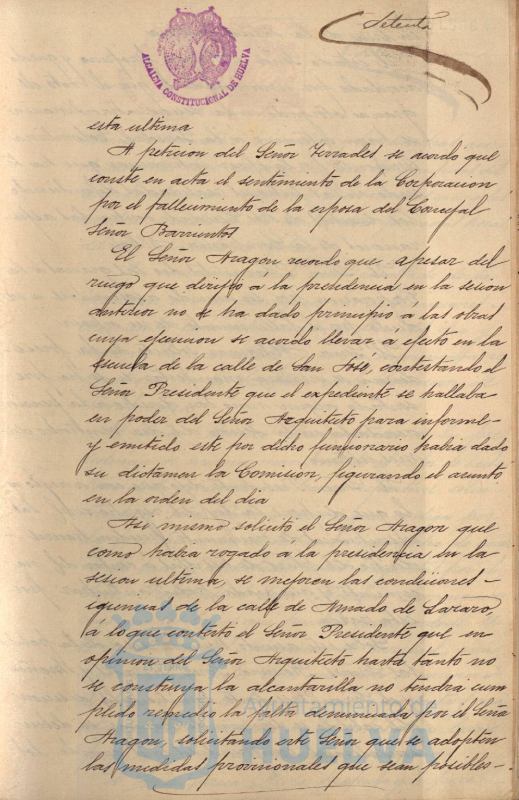 Setenta
ALCALDIA CONSTITUCIONAL DE HUELVA
esta ultima
A peticion del Señor Terrades se acordó que
conste en acta el sentimiento de la Corporacion
por el fallecimiento de la esposa del Concejal
Señor Barrientos
El Señor Aragon recordo que apesar del
ruego que dirijio á la presidencia en la sesion
anterior no se ha dado principio á las obras
cuya ejecucion se acordo llevar á efecto en la
escuela de la calle de San José, contestando el
Señor Presidente que el expediente se hallaba
en poder del Señor Arquitecto para informe-
y emitido este por dicho funcionario habia dado
su dictamen la Comision, figurando el asunto
en la orden del dia
Asi mismo solicitó el Señor Aragon que
como habia rogado á la presidencia en la
sesion ultima, se mejoren las condiciones-
igienicas de la calle de Amado de Lazaro,
á lo que contestó el Señor Presidente que en
opinion del Señor Arquitecto hasta tanto no
se construya la alcantarilla no tendra cum
plido remedio la falta denunciada por el Señor
Aragon, solicitando este Señor que se adopten
las medidas provisionales que sean posibles-
Ayuntamiento de
HUELVA